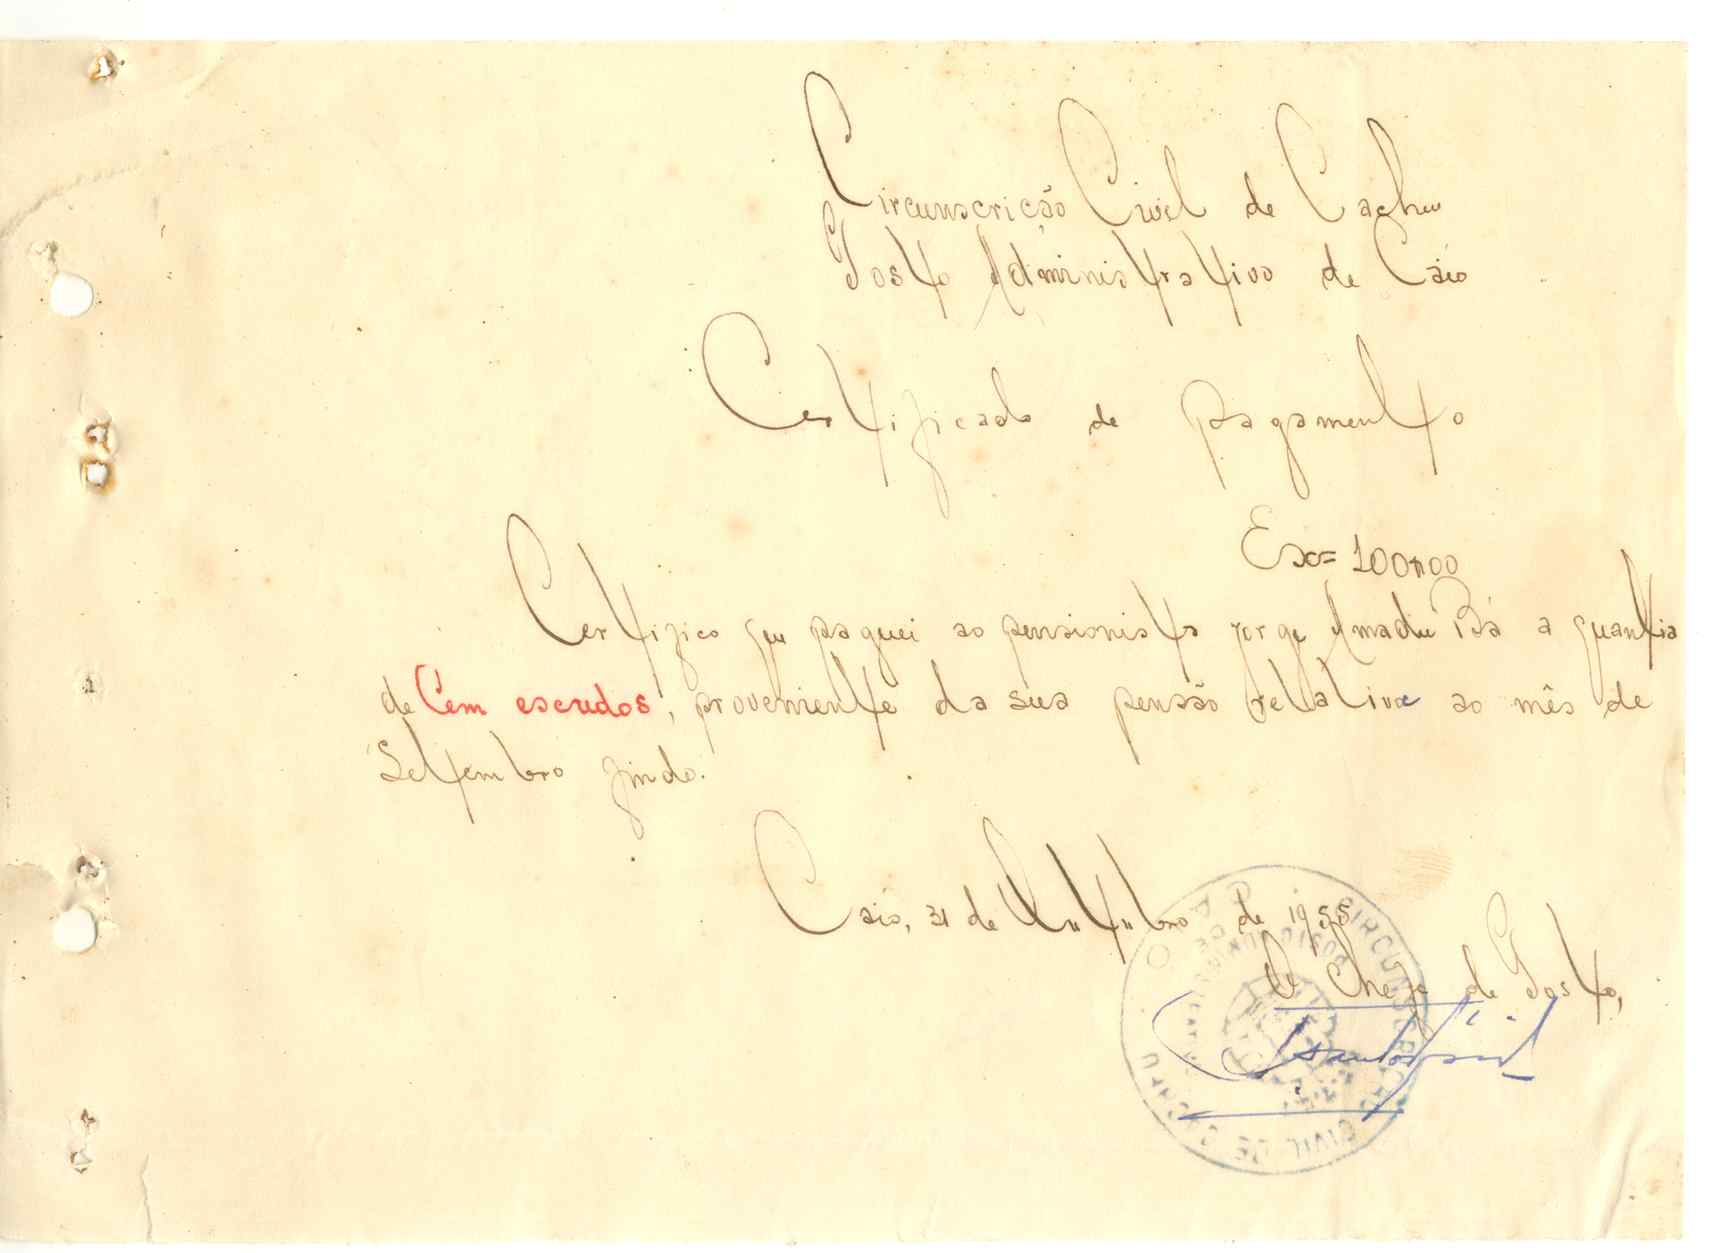 Circunscrição Civil de Cacheu
Posto Administrativo de Caió
Certificado de pagamento
Esc= 100$00
Certifico que paguei ao pensionista Jorge Amadu Bá a quantia
de Cem escudos, proveniente da sua pensão relativa ao mês de
Setembro findo.
Caió, 31 de Outubro de 1955
O Chefe de Posto,
CIRCUNSCRIÇÃO CIVIL DE CACHEU
POSTO